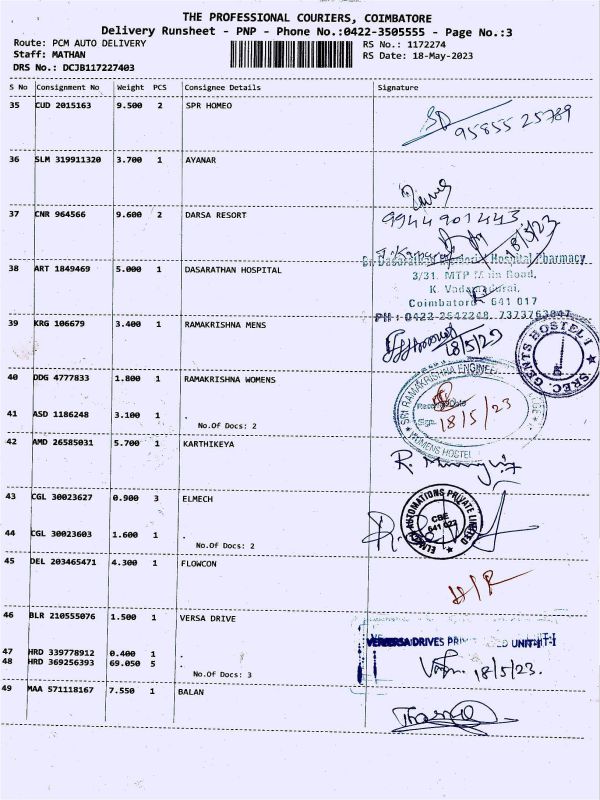 THE PROFESSIONAL COURIERS, COIMBATORE
Delivery Runsheet - PNP - Phone No.:0422-3505555 - Page No.:3
Route: PCM AUTO DELIVERY RS No.: 1172274
Staff: MATHAN RS Date: 18-May-2023
DRS No.: DCJB117227403
S No Consignment No Weight PCS Consignee Details Signature
35 CUD 2015163 9.500 2 SPR HOMEO
95855 25789
36 SLM 319911320 3.700 1 AYANAR
37 CNR 964566 9.600 2 DARSA RESORT
9944901443
18/5/23
38 ART 1849469 5.000 1 DASARATHAN HOSPITAL
Hospital Pharmacy
3/31, MTP Main Road,
K. Vadamadurai,
Coimbatore - 641 017
PH : 0422-2642248, 7373763047
39 KRG 106679 3.400 1 RAMAKRISHNA MENS
18/5/23
SREC. GENTS HOSTEL I
40 DDG 4777833 1.800 1 RAMAKRISHNA WOMENS
SRI RAMAKRISHNA ENGINEERING COLLEGE
Sign.
18/5/23
WOMENS HOSTEL
41 ASD 1186248 3.100 1 .
No.Of Docs: 2
42 AMD 26585031 5.700 1 KARTHIKEYA
43 CGL 30023627 0.900 3 ELMECH
ELMECH AUTOMATIONS PRIVATE LIMITED
CBE
641 022
44 CGL 30023603 1.600 1 .
No.Of Docs: 2
45 DEL 203465471 4.300 1 FLOWCON
46 BLR 210555076 1.500 1 VERSA DRIVE
VERSA DRIVES PRIVATE LIMITED UNIT-I
47 HRD 339778912 0.400 1
48 HRD 369256393 69.050 5 .
No.Of Docs: 3
18/5/23.
49 MAA 571118167 7.550 1 BALAN